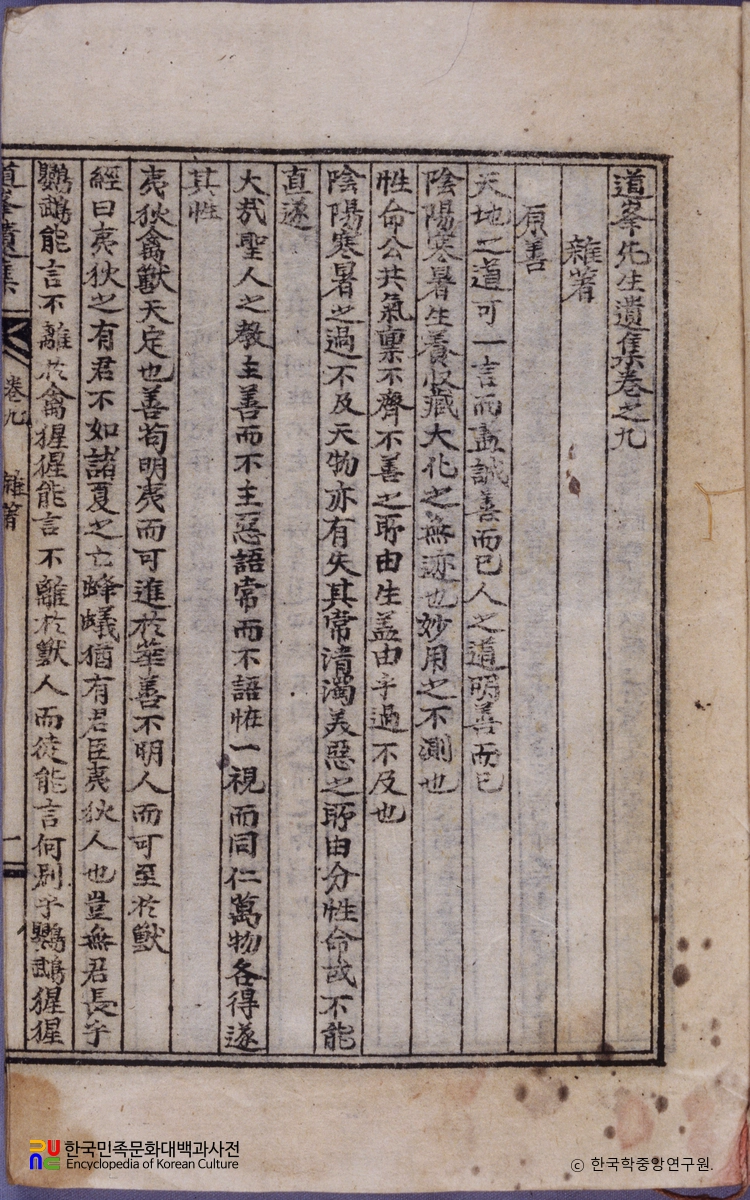 道峯先生遺集卷之九
雜著
原善
天地之道可一言而盡誠善而已人之道明善而已
陰陽寒暑生養收藏大化之無迹也妙用之不測也
性命公共氣稟不齊不善之所由生盖由乎過不及也
陰陽寒暑之過不及天物亦有失其常清濁美惡之所由分性命或不能
直遂
大哉聖人之敎主善而不主惡語常而不語恠一視而同仁萬物各得遂
其性
夷狄禽獸天定也善苟明夷而可進於華善不明人而可至於獸
經曰夷狄之有君不如諸夏之亡蜂蟻猶有君臣夷狄人也豈無君長乎
鸚鵡能言不離於禽猩猩能言不離於獸人而徒能言何別乎鸚鵡猩猩
道峯遺集 卷九 雜著 一
한국민족문화대백과사전
Encyclopedia of Korean Culture
ⓒ 한국학중앙연구원.